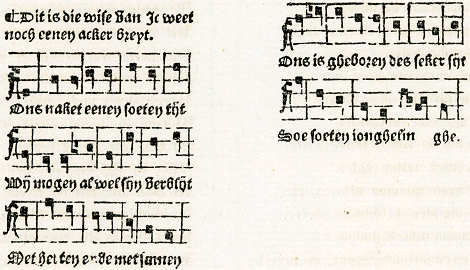 Dit is die wise Van Jc weet
noch eenen acker breyt.
Ons naket eenen soeten tijt
Wij mogen al wel sijn verblijt
Met herten ende met sinnen
Ons is gheboren des seker sijt
Soe soeten ionghelin ghe.